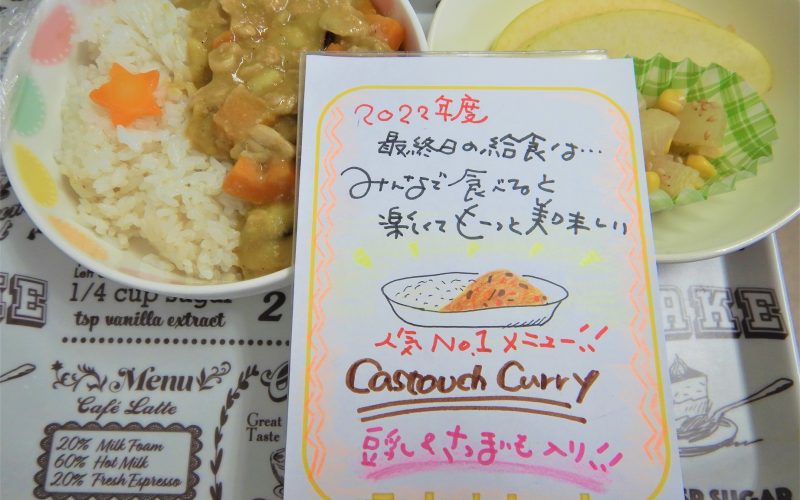 2022年度
最終日の給食は…
みんなで食べると
楽しくてもーっと美味しい
人気No.1メニュー!!
Castouch Curry
豆乳&さつまいも入り!!
1/4 cup sugar
2
tsp vanilla extract
Menu
Café Latte
20% Milk Foam
60% Hot Milk
20% Fresh Espresso
Great
Taste
AKE